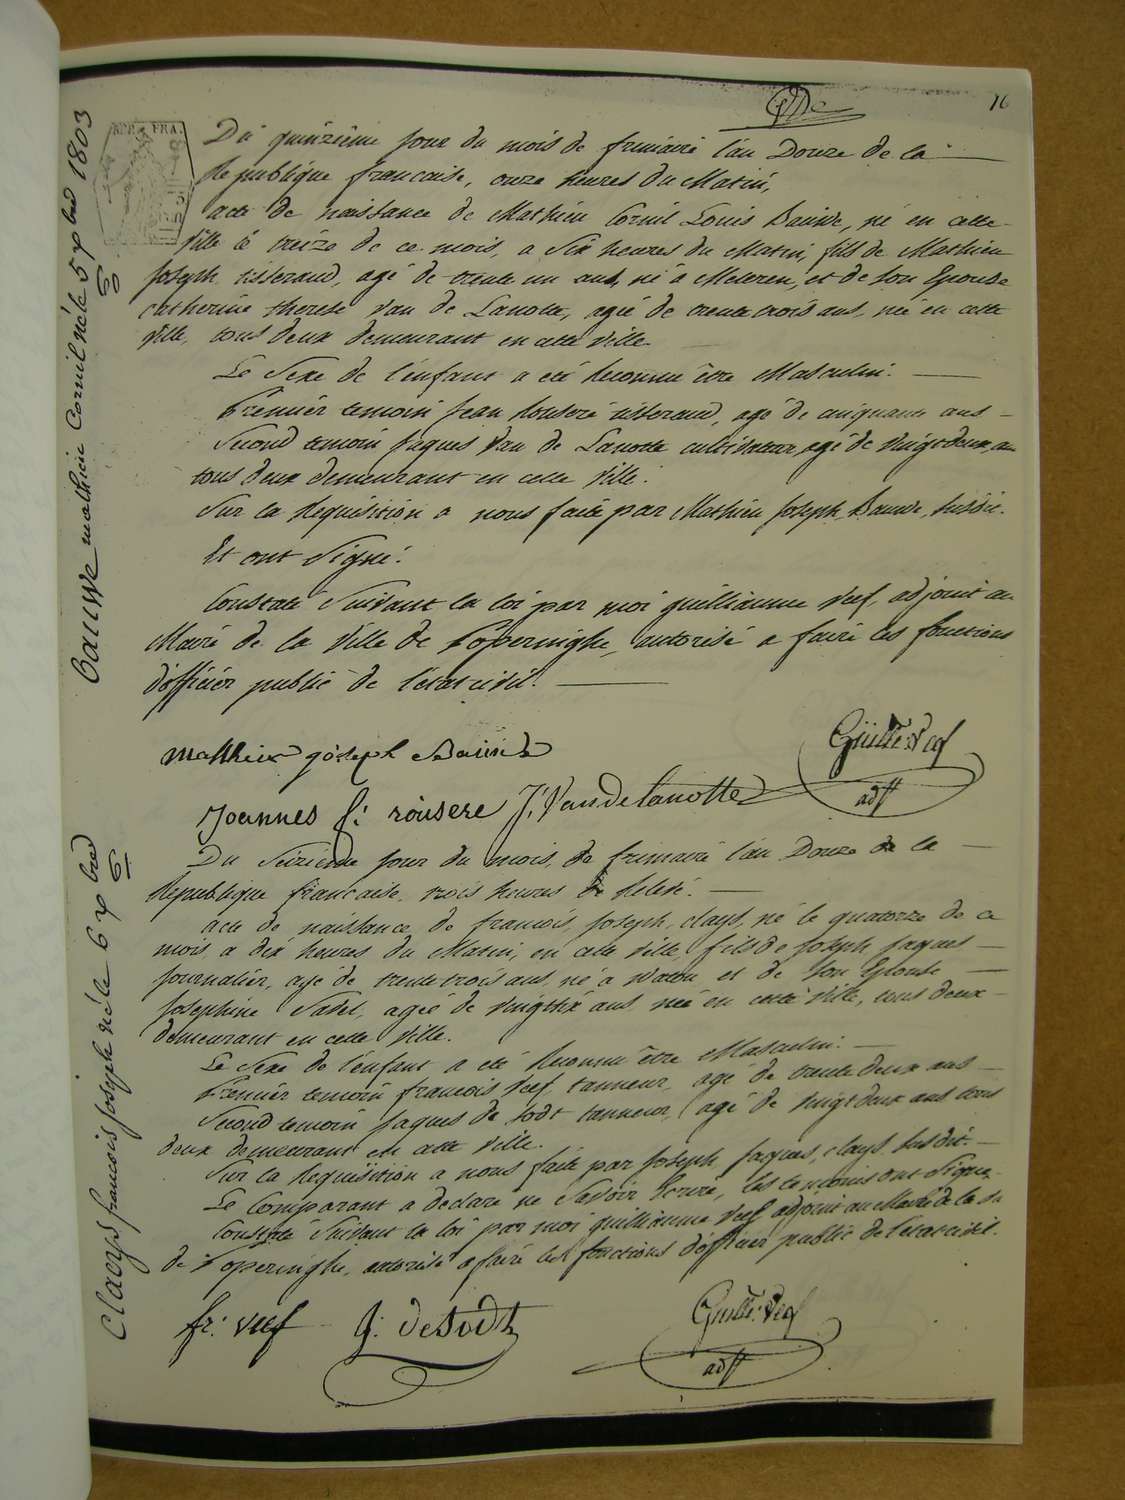 16
REP. FRA.
Bauwe mathieu Cornil né le 5 xbre 1803
Du quinzième jour du mois de frimaire l'an Douze de la
Republique francaise, onze heures du Matin,
acte de naissance de Mathieu Cornil Louis Bauwe, né en cette
ville le treize de ce mois, a Six heures du Matin, fils de Mathieu
Joseph tisserand, agé de trente un ans, né à Meteren, et de Son Epouse
catherine therese Van de Lanotte, agée de trente trois ans, née en cette
ville, tous deux demeurant en cette ville.
Le Sexe de l'enfant a eté Reconnu être Masculin.
Premier temoin Jean Rousere tisserand, agé de cinquante ans
Second temoin Jaques Van de Lanotte cultivateur, agé de vingt deux, an
tous deux demeurant en cette Ville.
Sur la Requisition a nous faite par Mathieu Joseph Bauwe, susdit.
Et ont Signé.
Constaté Suivant la loi par moi guillianme Veef, adjoint au
Maire de la Ville de Poperinghe, autorisé a faire les fonctions
d'officier public de l'état civil.
Matthieu joseph Bauwe
Guille. Veef
adjt
Joannes f: rousere J. Vandelanotte
Claeys francois Joseph né le 6 xbre
Du Seizieme jour du mois, de frimaire l'an Douze de la
Republique francaise, trois heures de Relevé.
acte de naissance, de francois, Joseph, clays, né le quatorze de ce
mois, a dix heures du Matin, en cette ville, fils de Joseph Jaques
journalier, agé de trente trois ans, né a Watou, et de Son Epouse
Josephine agée de vingt six ans, née en cette Ville, tous deux
demeurant en cette Ville.
Le Sexe de l'enfant a eté Reconnu être Masculin.
Premier temoin francois Veef, tanneur, agé de trente deux ans
Second temoin Jaques de Sodt tanneur, agé de vingt deux ans tous
deux demeurant en cette Ville.
Sur la Requisition a nous faite par Joseph, Jaques, clays, Susdit.
Le Comparant a declaré ne Savoir Ecrire, les temoins ont Signé.
Constaté Suivant la loi par moi guillianme Veef adjoint au Maire de la
de Poperinghe, autorisé a faire les fonctions d'officier public de l'état civil.
fr: veef J: deSodt
Guille. Veef
adjt